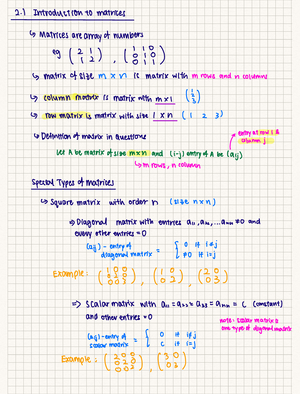 2.1 Introduction to matrices
↳ Matrices are array of numbers
eg ( 2 1 ) , ( 1 1 0 )
( 1 2 ) ( 0 1 0 )
( 0 1 1 )
↳ matrix of size m × n is matrix with m rows and n columns
↳ column matrix is matrix with m×1 ( 1 2 3 )
↳ row matrix is matrix with size 1 × n ( 1 2 3 )
↳ Definition of matrix in questions
entry at row i &
column j
Let A be matrix of size m×n and (i-j) entry of A be (aij)
↳ m rows, n column
Special Types of Matrices
↳ Square matrix with order n (size n×n)
⇒ Diagonal matrix with entries a11, a22, ... ann ≠ 0 and
every other entries = 0
(aij) - entry of
diagonal matrix = { 0 if i≠j
≠0 if i=j
Example :
⇒ Scalar matrix with a11 = a22 = a33 = ann = c (constant)
and other entries = 0
note: scalar matrix is
one type of diagonal matrix
(aij) - entry of
scalar matrix = { 0 if i≠j
c if i=j
Example :